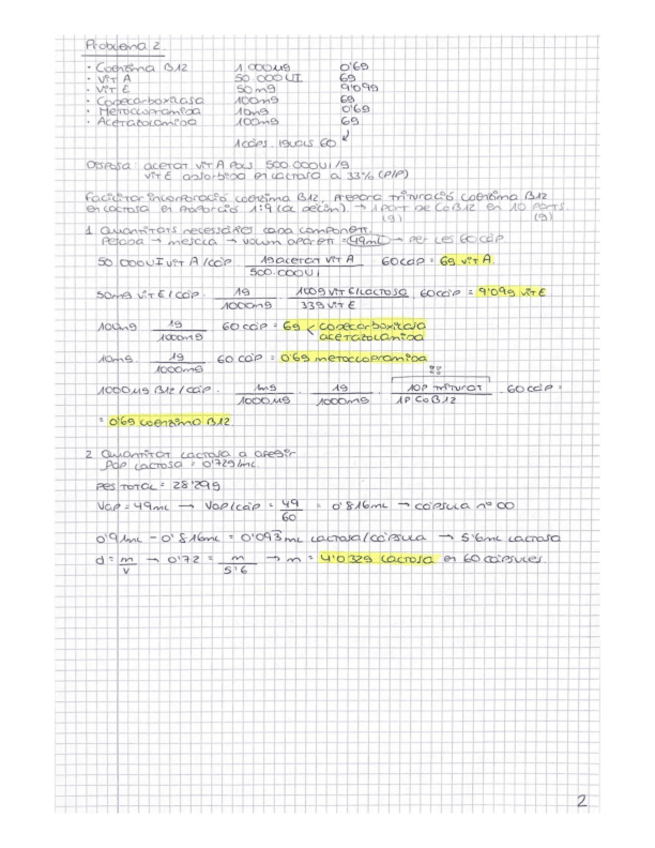 Problema 2.
· Coenzima B12 1.000µg 0'6g
· Vit A 50.000UI 6g
· Vit E 50mg 9'09g
· Cocarboxilasa 100mg 6g
· Metoclopramida 10mg 0'6g
· Acetazolamida 100mg 6g
1 càps. iguals 60
Disposa: acetat vit A pols 500.000UI/g
vit E absorbida en lactosa a 33% (p/p)
Facilitar incorporació coenzima B12, prepara trituració coenzima B12
en lactosa en proporció 1:9 (al dècim). → 1 part de CoB12 en 10 parts.
(g) (g)
1. Quantitats necessàries cada component.
Pesada → mescla → volum aparent = 49mL → per les 60 càp
50.000UI vit A/càp · 1g acetat vit A / 500.000UI · 60càp = 6g vit A.
50mg vit E/càp · 1g / 1000mg · 100g vit E/lactosa / 33g vit E · 60càp = 9'09g vit E
100mg · 1g / 1000mg · 60càp = 6g < cocarboxilasa
acetazolamida
10mg · 1g / 1000mg · 60 càp = 0'6g metoclopramida
1000µg B12/càp · 1mg / 1000µg · 1g / 1000mg · 10p triturat / 1p CoB12 · 60càp =
= 0'6g coenzima B12
2. Quantitat lactosa a afegir
ρap lactosa = 0'72g/mL
Pes TOTAL = 28'29g
Vap = 49mL → Vap/càp = 49 / 60 = 0'816mL → càpsula nº 00
0'91mL - 0'816mL = 0'093mL lactosa/càpsula → 5'6mL lactosa
d = m / V → 0'72 = m / 5'6 → m = 4'032g lactosa en 60 càpsules.
2